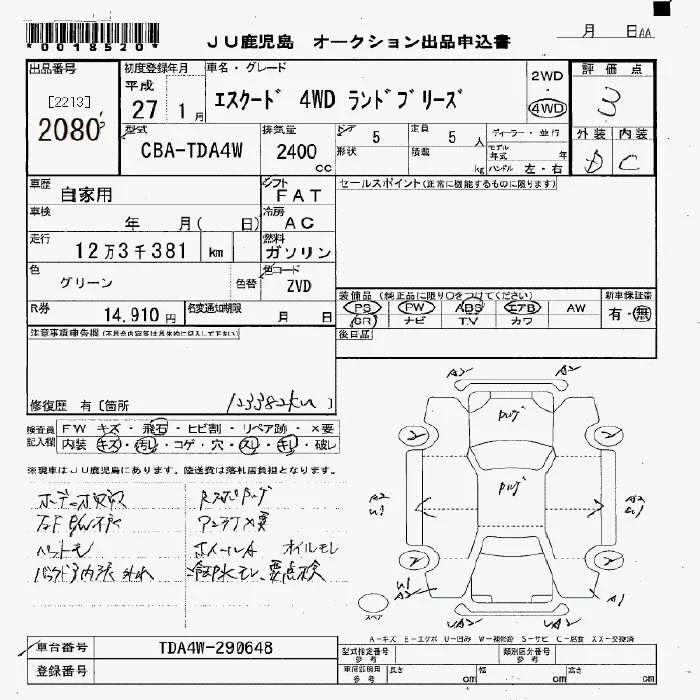 *0018520*
JU鹿児島 オークション出品申込書
月 日AA
出品番号
[2213]
2080
初度登録年月
平成
27 1月
車名・グレード
エスクード 4WD ランドブリーズ
2WD
4WD
評価点
3
外装 内装
D C
型式
CBA-TDA4W
排気量
2400
cc
ドア 5
形状
定員 5 人
積載 kg
ディーラー・並行
モデル年式 年
ハンドル 左・右
車歴
自家用
シフト
FAT
車検
年 月( 日)
冷房
AC
走行
12万3千381 km
燃料
ガソリン
色
グリーン
色替
色コード
ZVD
R券
14,910円
名変通知期限
月 日
セールスポイント(正常に機能するものに限ります)
装備品(純正品に限り○をつけてください)
PS PW ABS エアB AW
SR ナビ T.V カワ
新車保証書
有・無
後日品
注意事項申告欄(不具合内容等は具体的に記入して下さい)
修復歴 有〔箇所
123382km
検査員記入欄
FW キズ・飛石・ヒビ割・リペア跡・X要
内装 キズ・汚れ・コゲ・穴・スレ・キレ・破レ
※現車はJU鹿児島にあります。陸送費は落札店負担となります。
バックドア内張 外れ
ホイールA オイルモレ
冷却水モレ、要点検
A2 A2
2 2
A2 A2
2 2
U1
A2 A1
UA2 UA2
スペア
A-キズ E-エクボ U-凹み W-補修跡 S-サビ C-腐食 XX-交換済
車台番号
TDA4W-290648
登録番号
型式指定番号
参考
類別区分番号
参考
車両諸費用
参考
長さ cm
幅 cm
高さ cm